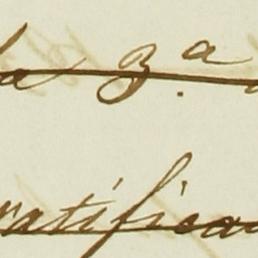 la 3.ª
ratifica